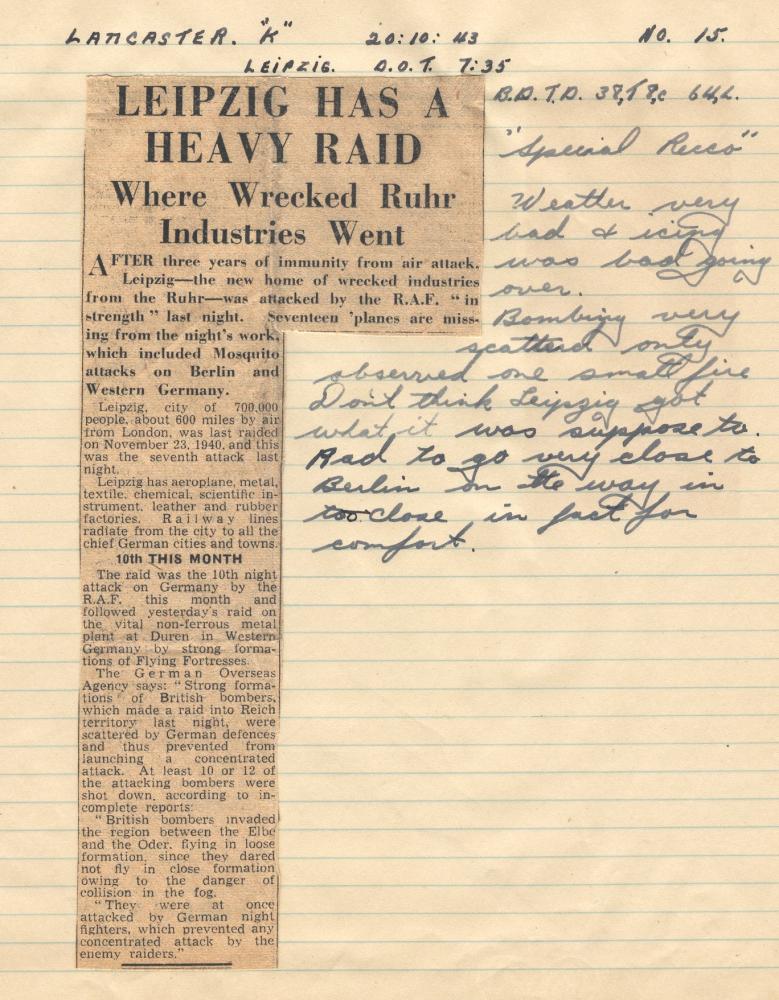 LANCASTER. "K" 20:10:43 NO. 15.
LEIPZIG. D.O.T. 7:35
LEIPZIG HAS A
HEAVY RAID
Where Wrecked Ruhr
Industries Went
AFTER three years of immunity from air attack,
Leipzig—the new home of wrecked industries
from the Ruhr—was attacked by the R.A.F. "in
strength" last night. Seventeen 'planes are miss-
ing from the night's work,
which included Mosquito
attacks on Berlin and
Western Germany.
Leipzig, city of 700,000
people, about 600 miles by air
from London, was last raided
on November 23, 1940, and this
was the seventh attack last
night.
Leipzig has aeroplane, metal,
textile, chemical, scientific in-
strument, leather and rubber
factories. Railway lines
radiate from the city to all the
chief German cities and towns.
10th THIS MONTH
The raid was the 10th night
attack on Germany by the
R.A.F. this month and
followed yesterday's raid on
the vital non-ferrous metal
plant at Duren in Western
Germany by strong forma-
tions of Flying Fortresses.
The German Overseas
Agency says: "Strong forma-
tions of British bombers,
which made a raid into Reich
territory last night, were
scattered by German defences
and thus prevented from
launching a concentrated
attack. At least 10 or 12 of
the attacking bombers were
shot down, according to in-
complete reports:
"British bombers invaded
the region between the Elbe
and the Oder, flying in loose
formation, since they dared
not fly in close formation
owing to the danger of
collision in the fog.
"They were at once
attacked by German night
fighters, which prevented any
concentrated attack by the
enemy raiders."
B.D.T.D.
"Special Recco"
Weather very
bad & icing
was bad going
over.
Bombing very
scatterd only
observed one small fire
Don't think Leipzig got
what it was suppose to.
Had to go very close to
Berlin on the way in
too close in fact for
comfort.